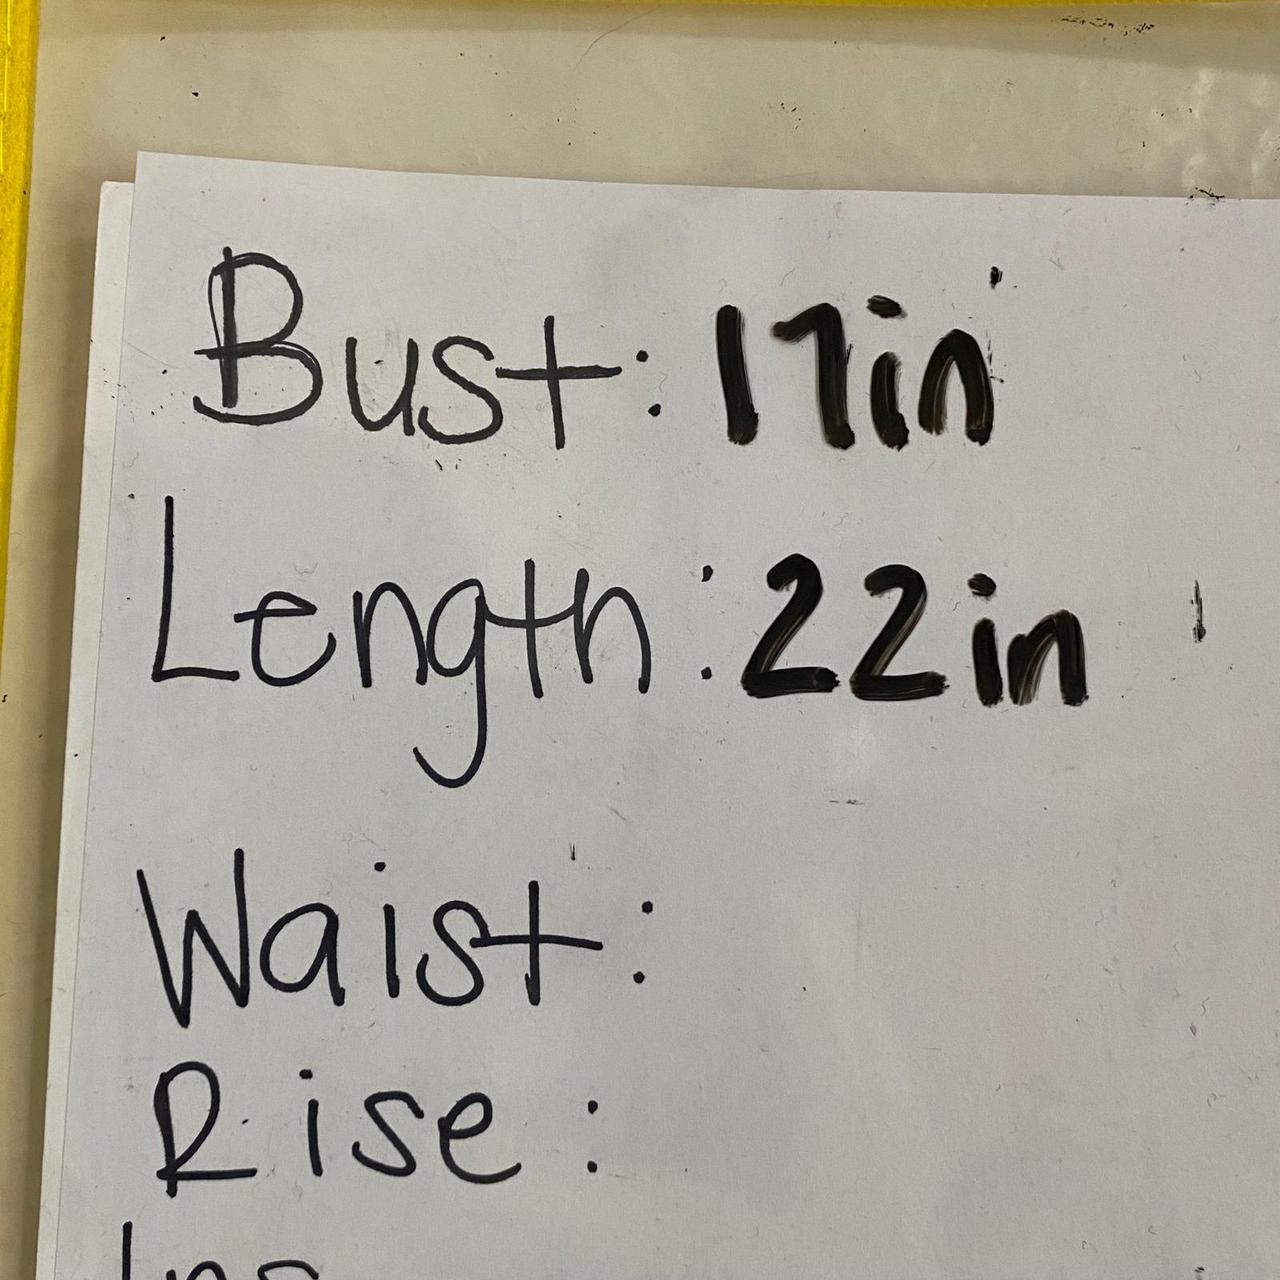 Bust: 17in
Length: 22in
Waist:
Rise: